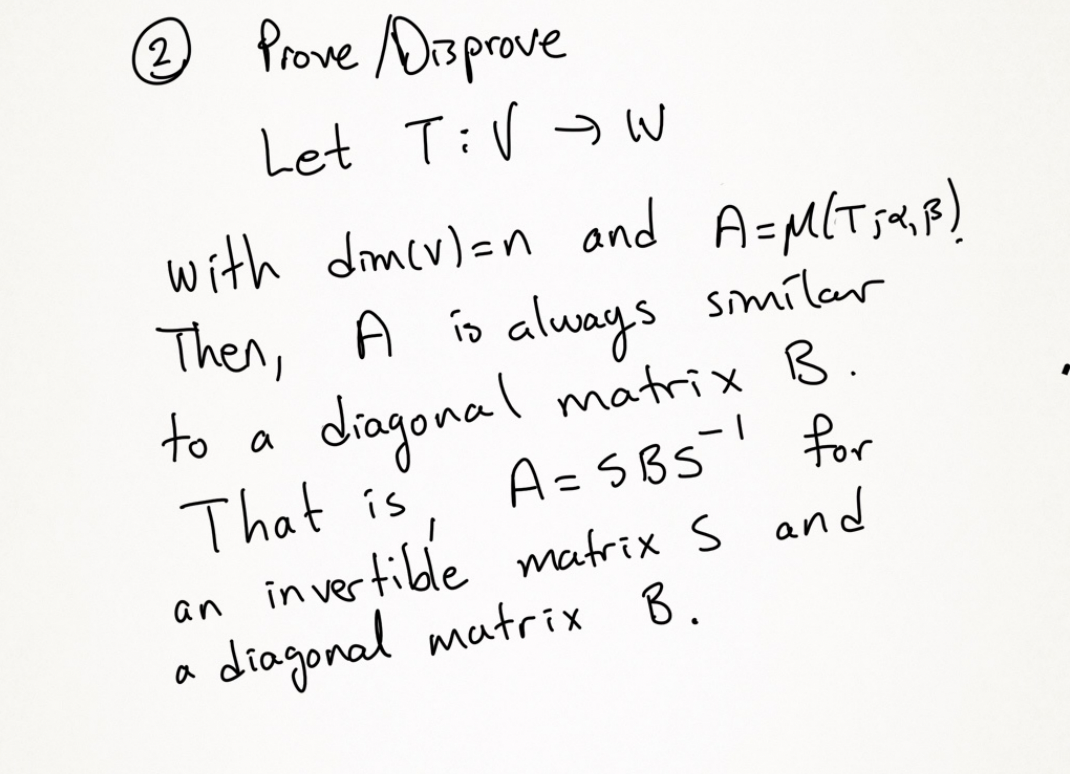 ② Prove/Disprove
Let T:V → W
with dim(V)=n and A=M(T;α,β).
Then, A is always similar
to a diagonal matrix B.
That is, A=SBS⁻¹ for
an invertible matrix S and
a diagonal matrix B.